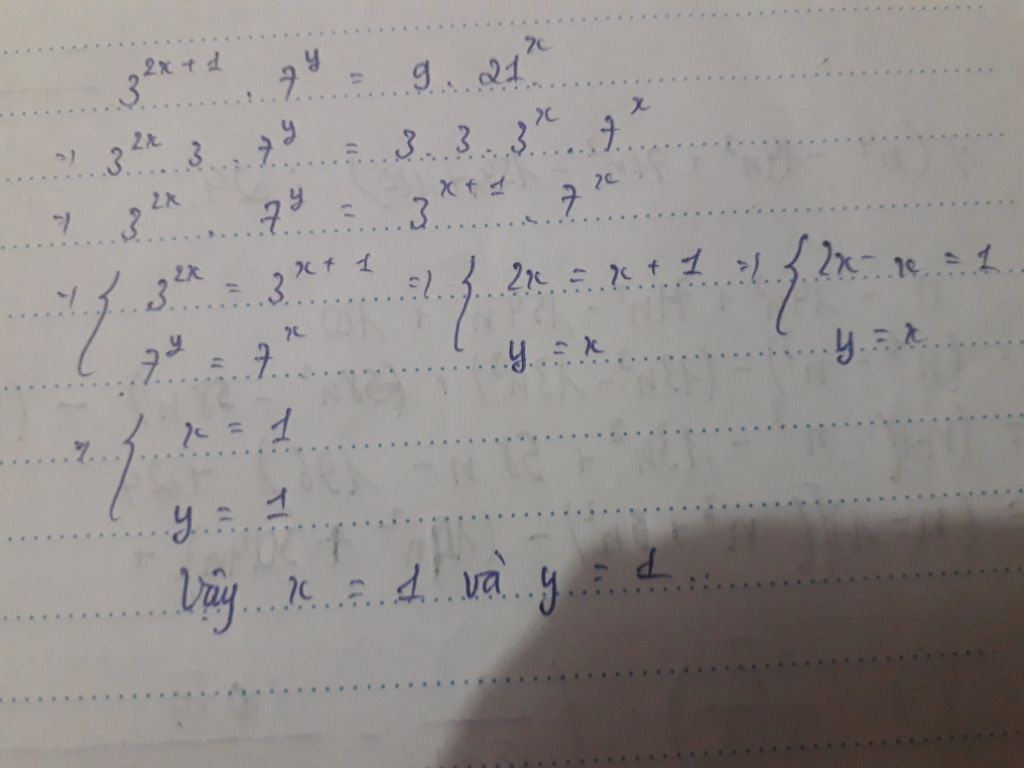 3^{2x+1} . 7^y = 9 . 21^x
=> 3^{2x} . 3 . 7^y = 3 . 3 . 3^x . 7^x
=> 3^{2x} . 7^y = 3^{x+1} . 7^x
=> { 3^{2x} = 3^{x+1} => { 2x = x + 1 => { 2x - x = 1
7^y = 7^x y = x y = x
=> { x = 1
y = 1
Vậy x = 1 và y = 1 ..